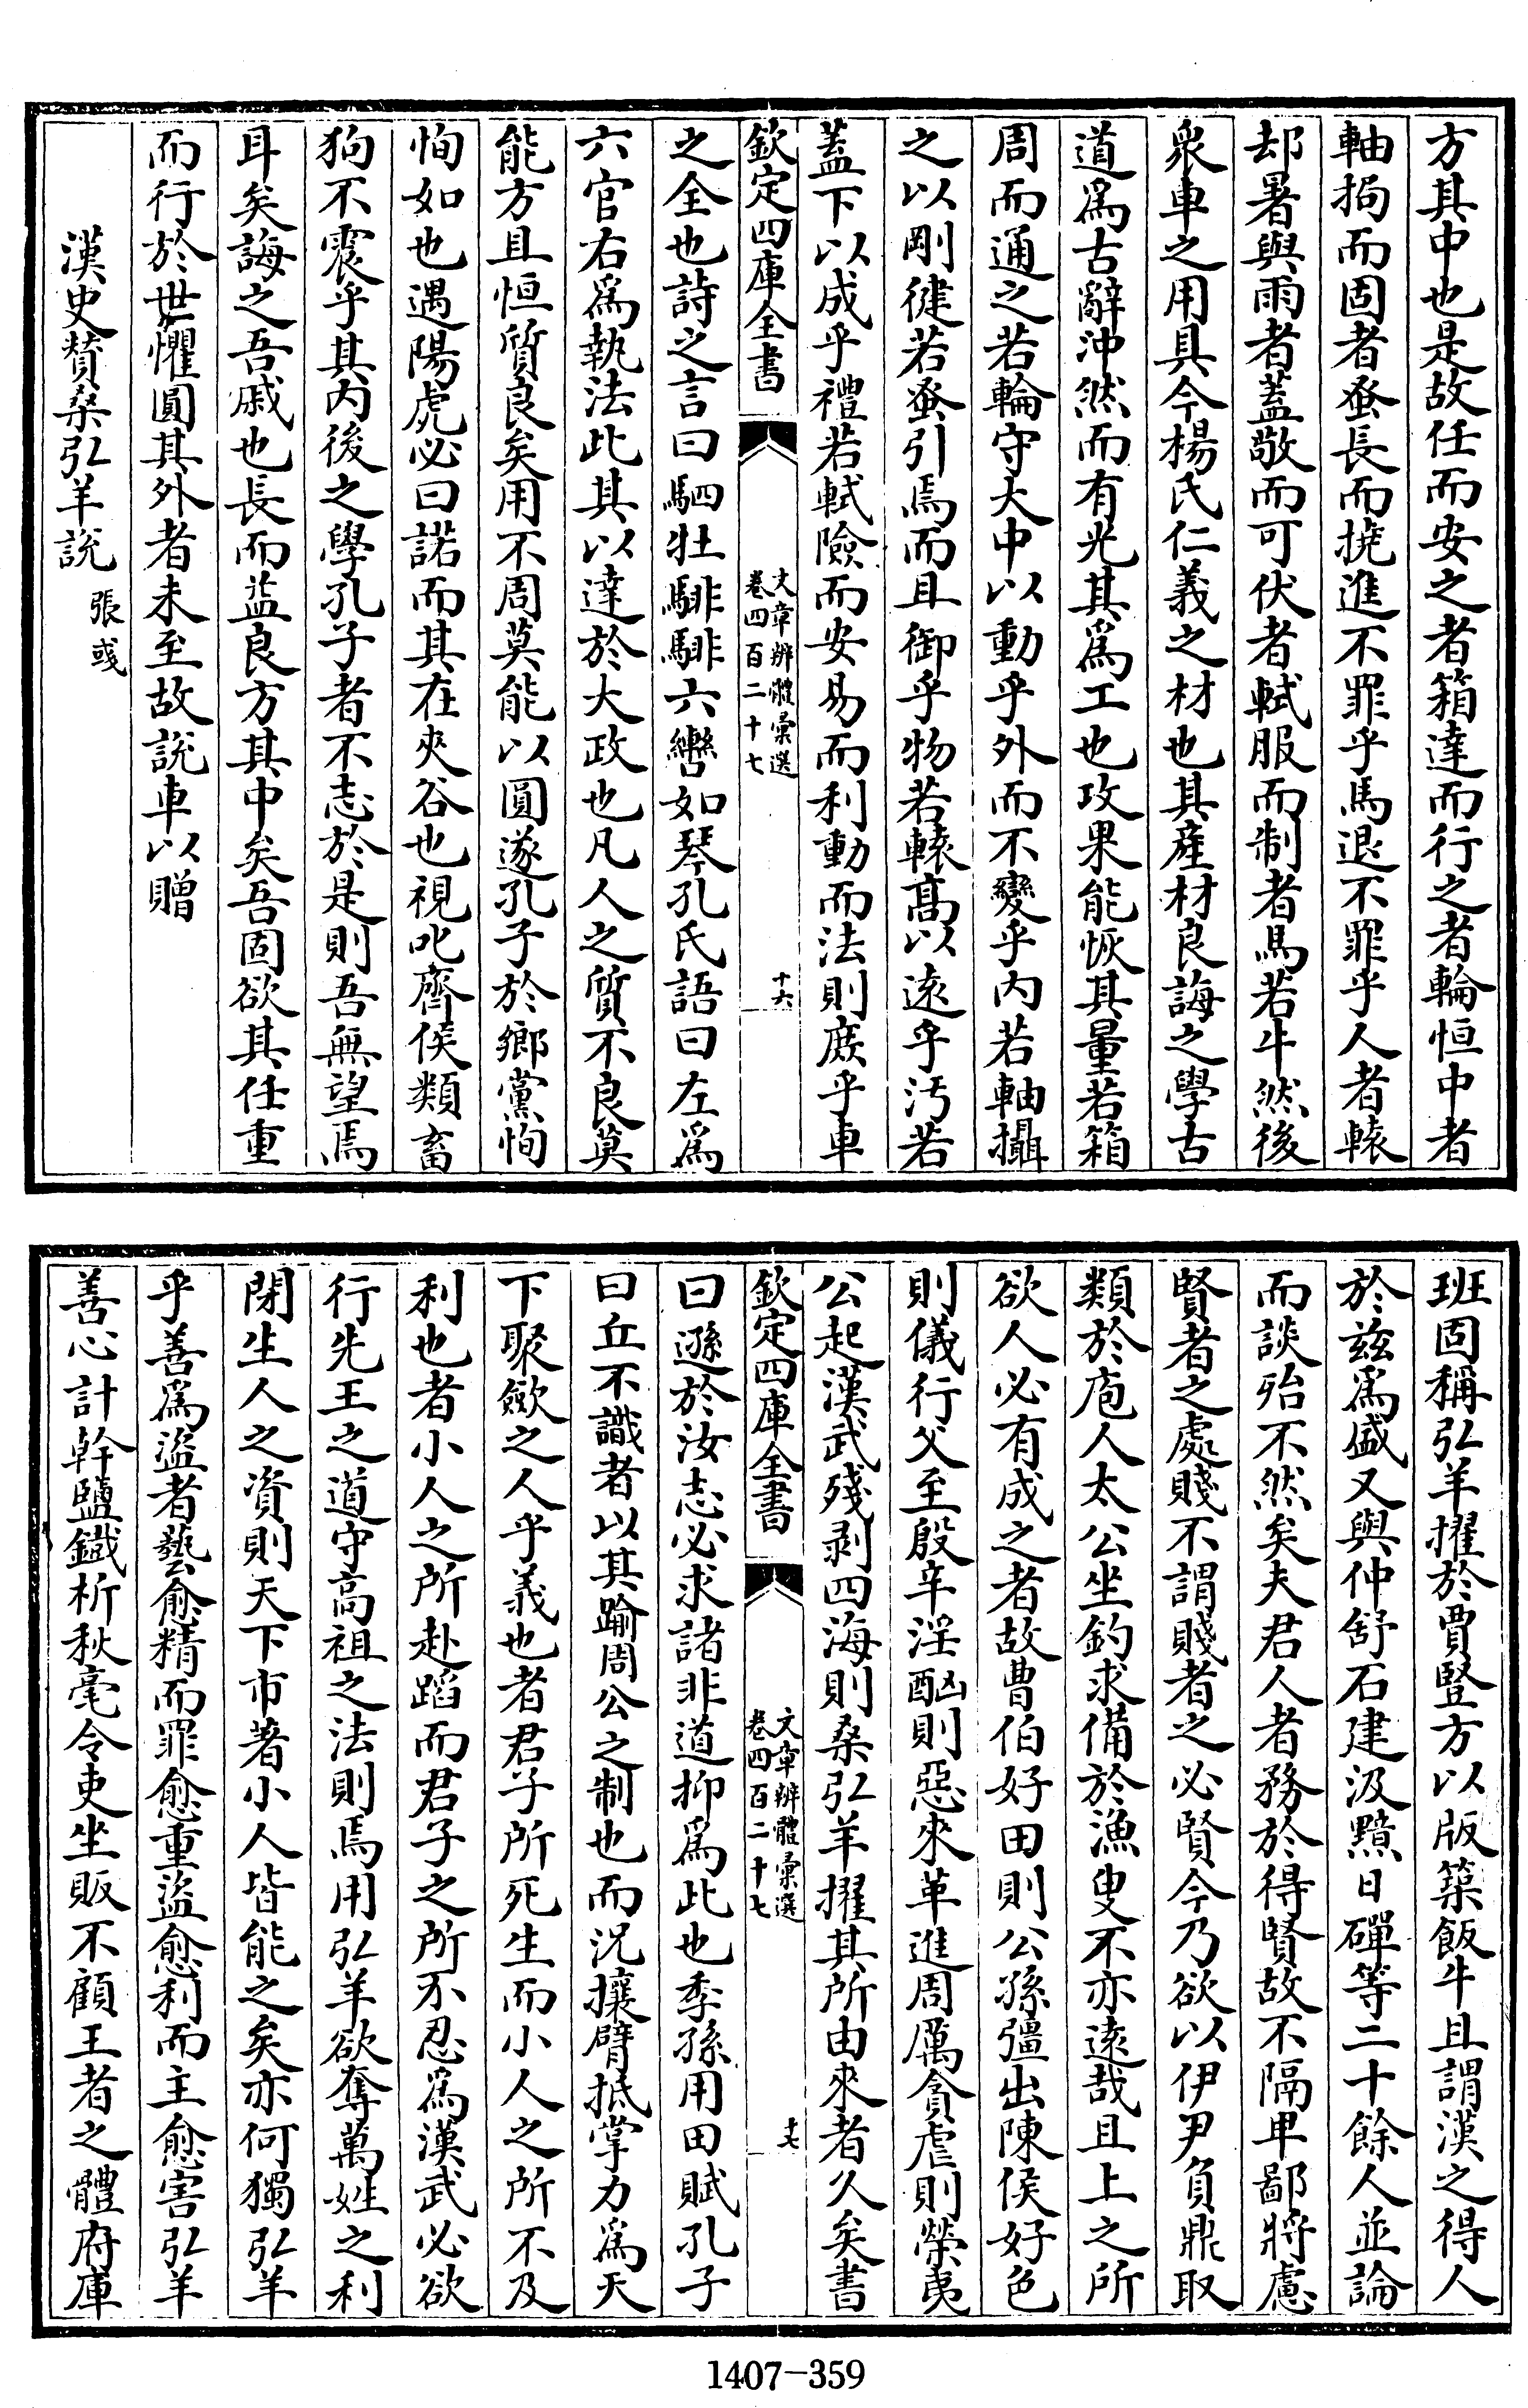 方其中也是故任而安之者箱達而行之者輪恒中者
軸挶而固者蚤長而撓進不罪乎馬退不罪乎人者轅
却暑與雨者蓋敬而可伏者軾服而制者馬若牛然後
衆車之用具今楊氏仁義之材也其産材良誨之學古
道爲古辭沖然而有光其爲工也攻果能恢其量若箱
周而通之若輪守大中以動乎外而不變乎内若軸攝
之以剛健若蚤引焉而且御乎物若轅髙以逺乎汚若
蓋下以成乎禮若軾險而安易而利動而法則庶乎車
欽定四庫全書
文章辨體彙選
卷四百二十七
十六
之全也詩之言曰駟牡騑騑六轡如琴孔氏語曰左爲
六官右爲執法此其以達於大政也凡人之質不良莫
能方且恒質良矣用不周莫能以圓遂孔子於鄉黨恂
恂如也遇陽虎必曰諾而其在夾谷也視叱齊侯類畜
狗不震乎其内後之學孔子者不志於是則吾無望焉
耳矣誨之吾戚也長而益良方其中矣吾固欲其任重
而行於世懼圓其外者未至故説車以贈
漢史贊桑弘羊説 張彧
班固稱弘羊擢於賈豎方以版築飯牛且謂漢之得人
於兹爲盛又與仲舒石建汲黯日磾等二十餘人並論
而談殆不然矣夫君人者務於得賢故不隔卑鄙將慮
賢者之處賤不謂賤者之必賢今乃欲以伊尹負鼎取
類於庖人太公坐釣求備於漁叟不亦逺哉且上之所
欲人必有成之者故曹伯好田則公孫彊出陳侯好色
則儀行父至殷辛淫酗則惡來革進周厲貪虐則榮夷
公起漢武殘剥四海則桑弘羊擢其所由來者久矣書
欽定四庫全書
文章辨體彙選
卷四百二十七
十七
曰遜於汝志必求諸非道抑爲此也季孫用田賦孔子
曰丘不識者以其踰周公之制也而況攘臂抵掌力爲天
下聚歛之人乎義也者君子所死生而小人之所不及
利也者小人之所赴蹈而君子之所不忍爲漢武必欲
行先王之道守高祖之法則焉用弘羊欲奪萬姓之利
閉生人之資則天下市著小人皆能之矣亦何獨弘羊
乎善爲盗者藝愈精而罪愈重盗愈利而主愈害弘羊
善心計幹鹽鐵析秋毫令吏坐販不顧王者之體府庫
1407-359